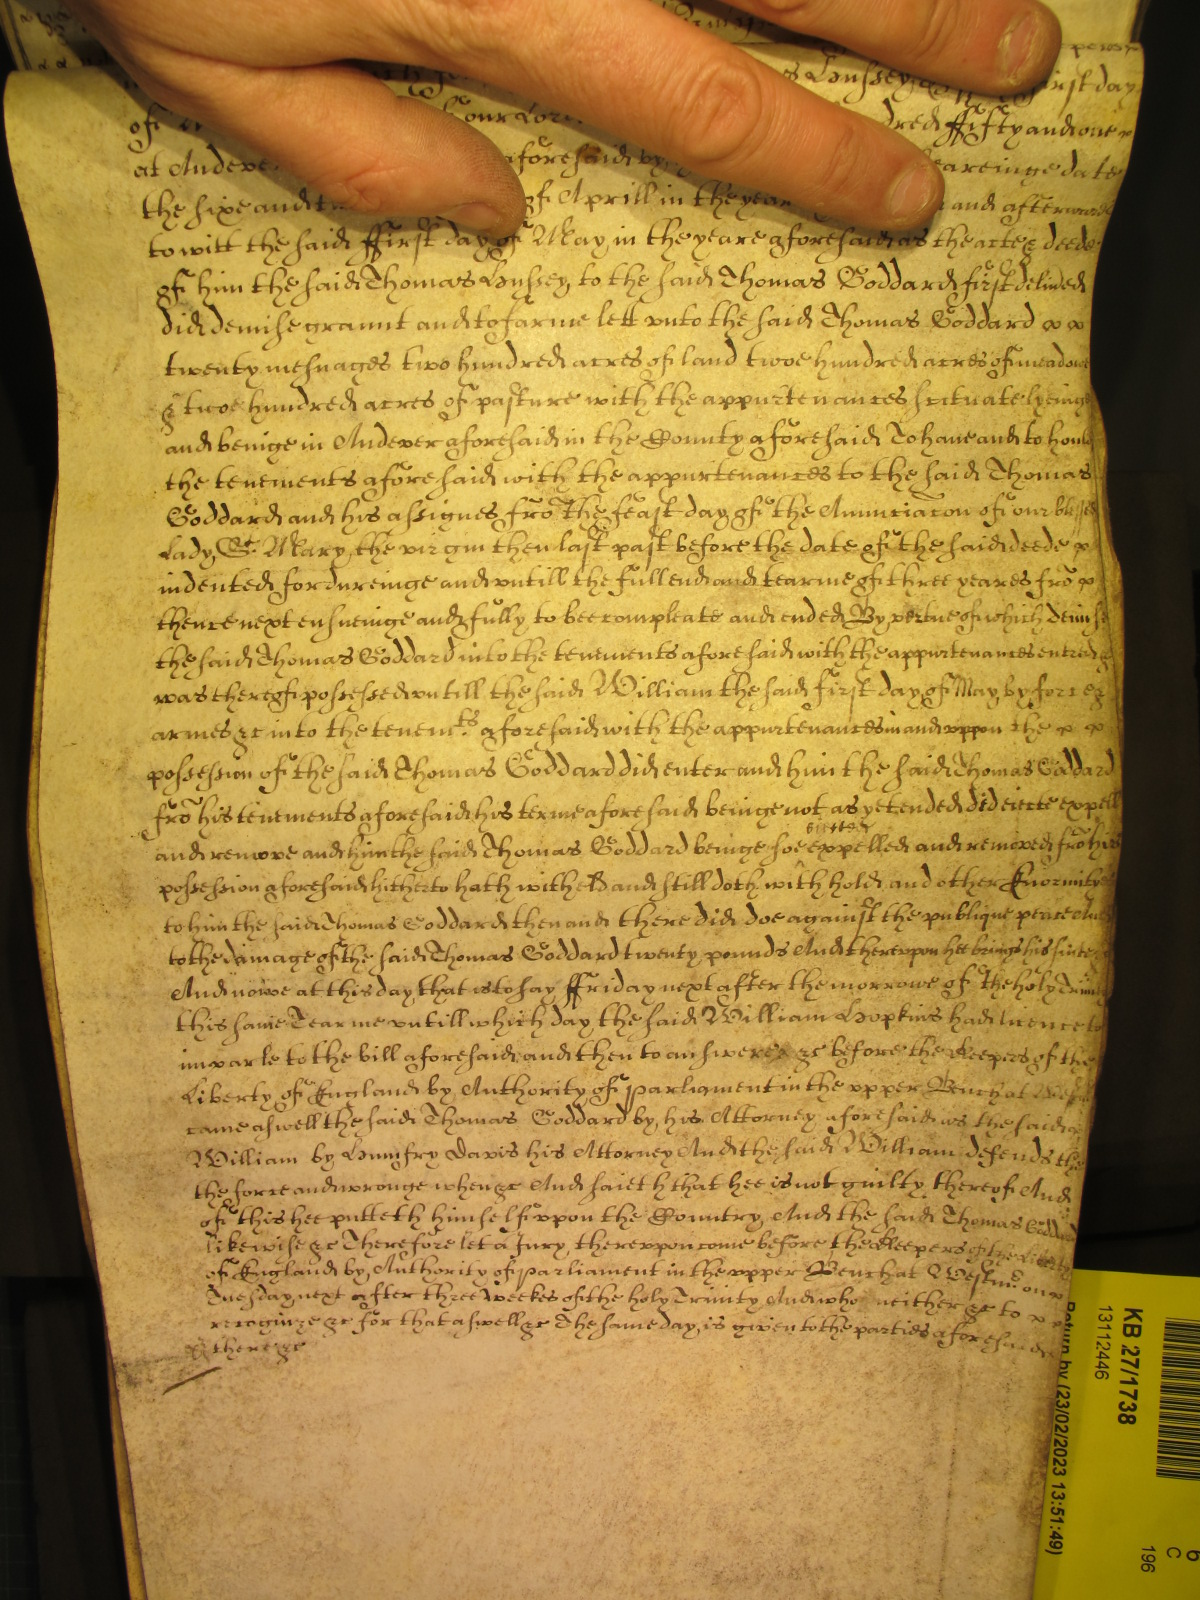 s Hussey first day
of our Lord dred ffifty and one
at Andever aforesaid by beareinge date
the sixe and of Aprill in the yeare and afterwards
to witt the said ffirst day of May in the yeare aforesaid as the acte & deede
of him the said Thomas Hussey to the said Thomas Goddard first delivered
did demise graunt and to farme lett vnto the said Thomas Goddard
twenty messuages two hundred acres of land twoe hundred acres of meadowe
& twoe hundred acres of pasture with the appurtenances scituate lyeinge
and beinge in Andever aforesaid in the County aforesaid To have and to hould
the tenements aforesaid with the appurtenances to the said Thomas
Goddard and his assignes frõ the feast day of the Annunciacon of our blessed
Lady St. Mary the virgin then last past before the date of the said deede
indented for dureinge and vntill the full end and tearme of three yeares frõ
thence next ensueinge and fully to bee compleate and ended By vertue of which demise
the said Thomas Goddard into the tenements aforesaid with the appurtenances entred &
was thereof possessed vntill the said William the said first day of May by force &
armes &c into the tenemts aforesaid with the appurtenances in and vppon the
possession of the said Thomas Goddard did enter and him the said Thomas Goddard
frõ his tenements aforesaid his terme aforesaid beinge not as yet ended did eiecte expell
and remove and him the said Thomas Goddard beinge soe eiected expelled and removed frõ his
possession aforesaid hitherto hath witheld and still doth with hold and other Enormityes
to him the said Thomas Goddard then and there did doe against the publique peace And
to the damage of the said Thomas Goddard twenty pounds And therevpon hee brings his suite &c
And nowe at this day that is to say ffriday next after the morrowe of the holy Trinity
this same Tearme vntill which day the said William Hopkins had licence to
imparle to the bill aforesaid and then to answere &c before the Keepers of the
Liberty of England by Authority of parliament in the vpper Bench at Westm
came aswell the said Thomas Goddard by his Attorney aforesaid as the said
William by Humfry Davis his Attorney And the said William defends the
the force and wronge when &c And saieth that hee is not guilty thereof And
of this hee putteth himselfe vppon the Country And the said Thomas Goddard
likewise &c Therefore let a Jury therevpon come before the Keepers of the Liberty
of England by Authority of parliament in the vpper Bench at Westmr on
Tuesday next after three weekes of the holy Trinity And who neither &c to
recognize &c for that aswell &c The same day is given to the parties aforesaid
there &c
KB 27/1738
13112446
Return by (23/02/2023 13:51:49)
C
196